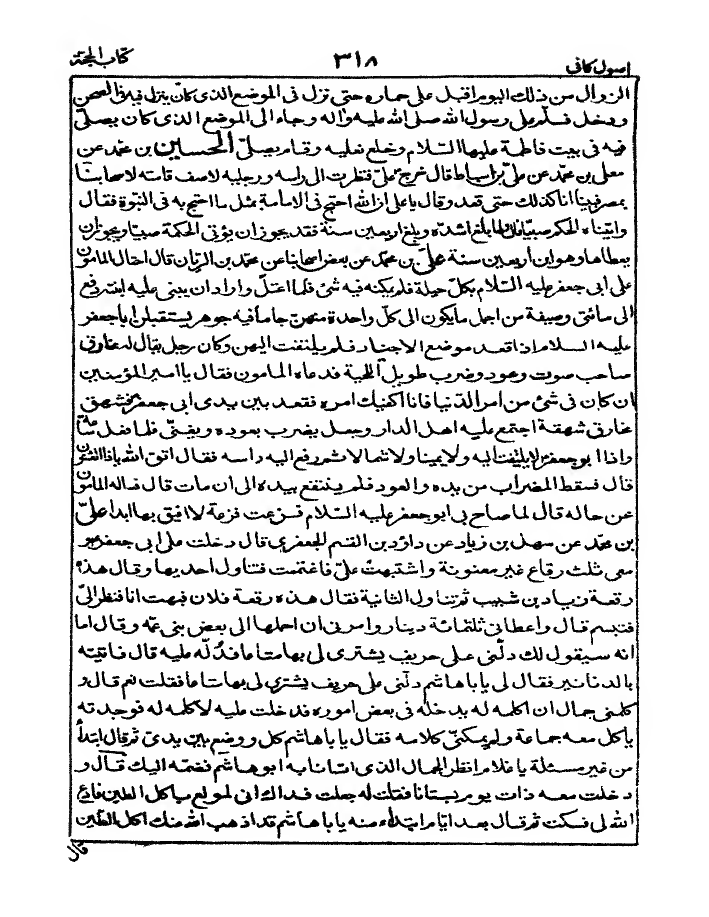 اصول کافی ٣١٨ کتاب الحجة
الزوال من ذلك اليوم اقبل على حماره حتى نزل فى الموضع الذى كان ينزل فيه فى الصحن
ودخل فسلم على رسول الله صلى الله عليه واله وجاء الى الموضع الذى كان يصلى
فيه فى بيت فاطمة عليها السلام وخلع نعليه وقام يصلى الحسين بن محمد عن
معلى بن محمد عن على بن اسباط قال خرج على فنظرت الى راسه ورجليه لاصف قامته لاصحابنا
بمصر فبينا انا كذلك حتى قعد وقال يا على ان الله احتج فى الامامة بمثل ما احتج به فى النبوة فقال
واتيناه الحكم صبيا قال ولما بلغ اشده وبلغ اربعين سنة فقد يجوز ان يؤتى الحكمة صبيا ويجوز ان
يعطاها وهو ابن اربعين سنة على بن محمد عن بعض اصحابنا عن محمد بن الريان قال احتال المامون
على ابى جعفر عليه السلام بكل حيلة فلم يمكنه فيه شئ فلما اعتل واراد ان يبنى عليه ابنته دفع
الى مائتى وصيفة من اجمل ما يكون الى كل واحدة منهن جاما فيه جوهر يستقبلن اباجعفر
عليه السلام اذا قعد موضع الاجناد فلم يلتفت اليهن وكان رجل يقال له مخارق
صاحب صوت وعود وضرب طويل اللحية فدعاه المامون فقال يا امير المؤمنين
ان كان فى شئ من امر الدنيا فانا اكفيك امره فقعد بين يدى ابى جعفر فشهق
مخارق شهقة اجتمع عليه اهل الدار وجعل يضرب بعوده ويغنى فلما فعل ساعة
واذا ابوجعفر لا يلتفت اليه ولا يمينا ولا شمالا ثم رفع اليه راسه فقال اتق الله يا ذا العثنون
قال فسقط المضراب من يده والعود فلم ينتفع بيده الى ان مات قال فساله المامون
عن حاله قال لما صاح بى ابوجعفر عليه السلام فزعت فزعة لا افيق بها ابدا على
بن محمد عن سهل بن زياد عن داود بن القسم الجعفرى قال دخلت على ابى جعفر و
معى ثلث رقاع غير معنونة واشتبهت على فاغتممت فتناول احديها وقال هذه
رقعة زياد بن شبيب ثم تناول الثانية فقال هذه رقعة فلان فبهت انا فنظر الى
فتبسم قال واعطانى ثلثمائة دينار وامرنى ان احملها الى بعض بنى عمه وقال اما
انه سيقول لك دلنى على حريف يشترى لى بها متاعا فدله عليه قال فاتيته
بالدنانير فقال لى يا باهاشم دلنى على حريف يشترى لى بها متاعا فقلت نعم قال و
كلمنى جمال ان اكلمه له يدخله فى بعض اموره فدخلت عليه لاكلمه له فوجدته
ياكل معه جماعة ولم يمكنى كلامه فقال يا باهاشم كل ووضع بين يدى ثم قال ابتدأ
من غير مسئلة يا غلام انظر الجمال الذى اتانا به ابوهاشم فضمه اليك قال و
دخلت معه ذات يوم بستانا فقلت له جعلت فداك انى لمولع باكل الطين فادع
الله لى فسكت ثم قال بعد ايام ابتداء منه يا باهاشم قد اذهب الله عنك اكل الطين
قال